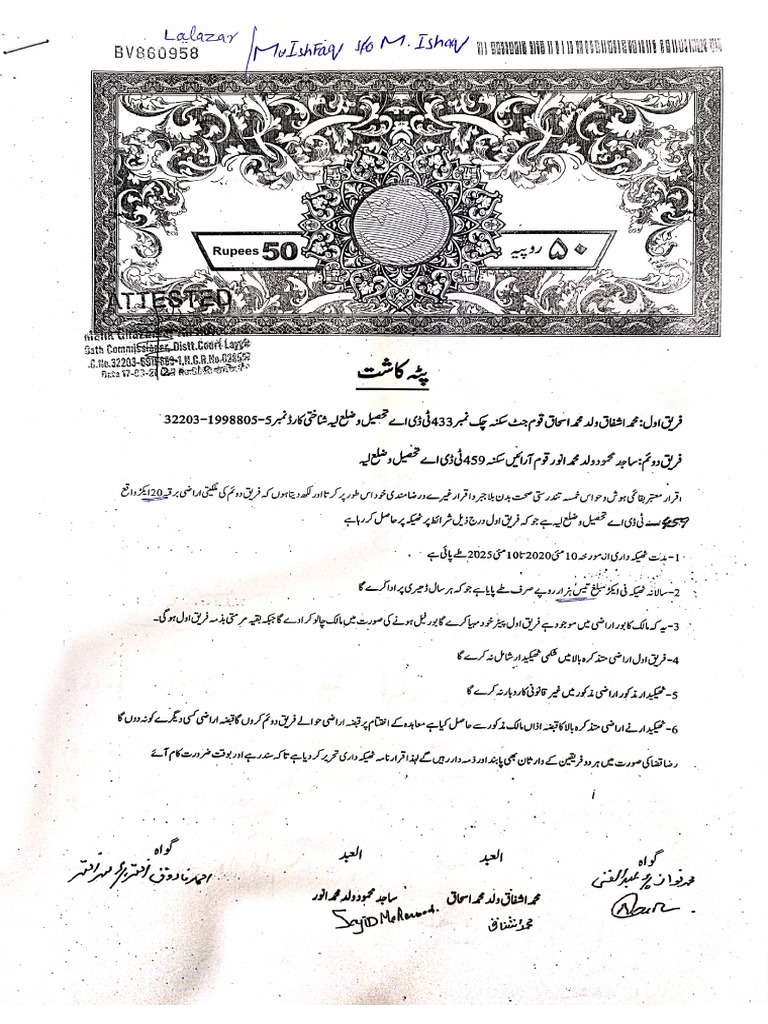 Lalazar / M. Ishfaq s/o M. Ishaq
BV860958
Rupees 50
۵۰ روپیہ
ATTESTED
Oath Commissioner, Distt. Court Layyah
پٹہ کاشت
فریق اول: محمد اشفاق ولد محمد اسحاق قوم جٹ سکنہ چک نمبر 433 ٹی ڈی اے تحصیل و ضلع لیہ شناختی کارڈ نمبر 5-1998805-32203
فریق دوئم: ساجد محمود ولد محمد انور قوم آرائیں سکنہ 459 ٹی ڈی اے تحصیل و ضلع لیہ
اقرار معتبر بقائمی ہوش و حواس خمسہ تندرستی صحت بدن بلا جبر و اقرار غیرے ورضامندی خود اس طور پر کرتا اور لکھ دیتا ہوں کہ فریق دوئم کی ملکیتی اراضی برقبہ 20 ایکڑ واقع
ٹی ڈی اے تحصیل و ضلع لیہ ہے جو کہ فریق اول درج ذیل شرائط پر ٹھیکہ پر حاصل کر رہا ہے
1- مدت ٹھیکہ داری از مورخہ 10 مئی 2020 تا 10 مئی 2025 طے پائی ہے
2- سالانہ ٹھیکہ فی ایکڑ مبلغ تیس ہزار روپے صرف طے پایا ہے جو کہ ہر سال ڈھیری پر ادا کرے گا
3- یہ کہ مالک کا بور اراضی میں موجود ہے فریق اول پیٹر خود مہیا کرے گا بور فیل ہونے کی صورت میں مالک چالو کرا دے گا جبکہ بقیہ مرمتی بذمہ فریق اول ہوگی۔
4- فریق اول اراضی متذکرہ بالا میں شکمی ٹھیکیدار شامل نہ کرے گا
5- ٹھیکیدار مذکور اراضی مذکور میں غیر قانونی کاروبار نہ کرے گا
6- ٹھیکیدار نے اراضی متذکرہ بالا کا قبضہ اذاں مالک مذکور سے حاصل کیا ہے معاہدہ کے اختتام پر قبضہ اراضی حوالے فریق دوئم کروں گا قبضہ اراضی کسی دیگرے کو نہ دوں گا
رضا قضا کی صورت میں ہر دو فریقین کے وارثان بھی پابند اور ذمہ دار رہیں گے لہذا اقرار نامہ ٹھیکہ داری تحریر کر دیا ہے تا کہ سند رہے اور بوقت ضرورت کام آئے
گواہ
محمد نواز ولد عبدالغنی
العبد
محمد اشفاق ولد محمد اسحاق
محمد اشفاق
العبد
ساجد محمود ولد محمد انور
Sajid Mehmood.
گواہ